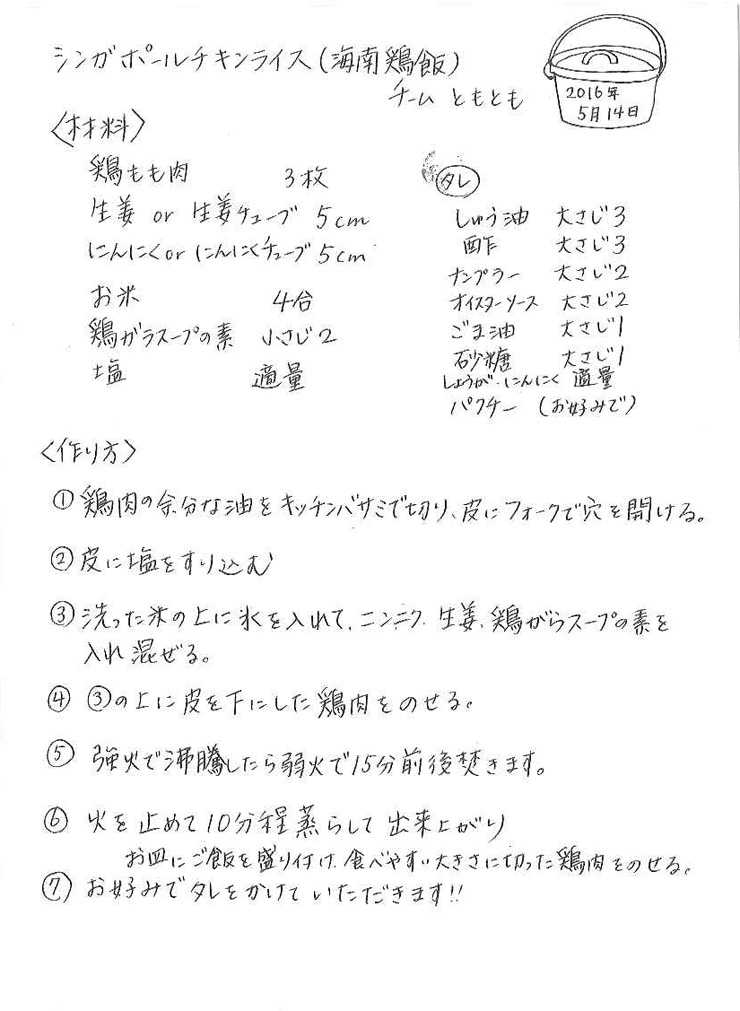 シンガポールチキンライス(海南鶏飯)
チーム ともとも
2016年
5月14日
〈材料〉
鶏もも肉 3枚
生姜 or 生姜チューブ 5cm
にんにく or にんにくチューブ 5cm
お米 4合
鶏ガラスープの素 小さじ2
塩 適量
タレ
しょう油 大さじ3
酢 大さじ3
ナンプラー 大さじ2
オイスターソース 大さじ2
ごま油 大さじ1
砂糖 大さじ1
しょうが・にんにく 適量
パクチー (お好みで)
〈作り方〉
① 鶏肉の余分な油をキッチンバサミで切り、皮にフォークで穴を開ける。
② 皮に塩をすり込む
③ 洗った米の上に水を入れて、ニンニク、生姜、鶏がらスープの素を
入れ混ぜる。
④ ③の上に皮を下にした鶏肉をのせる。
⑤ 強火で沸騰したら弱火で15分前後焚きます。
⑥ 火を止めて10分程蒸らして出来上がり
お皿にご飯を盛り付け、食べやすい大きさに切った鶏肉をのせる。
⑦ お好みでタレをかけていただきます!!